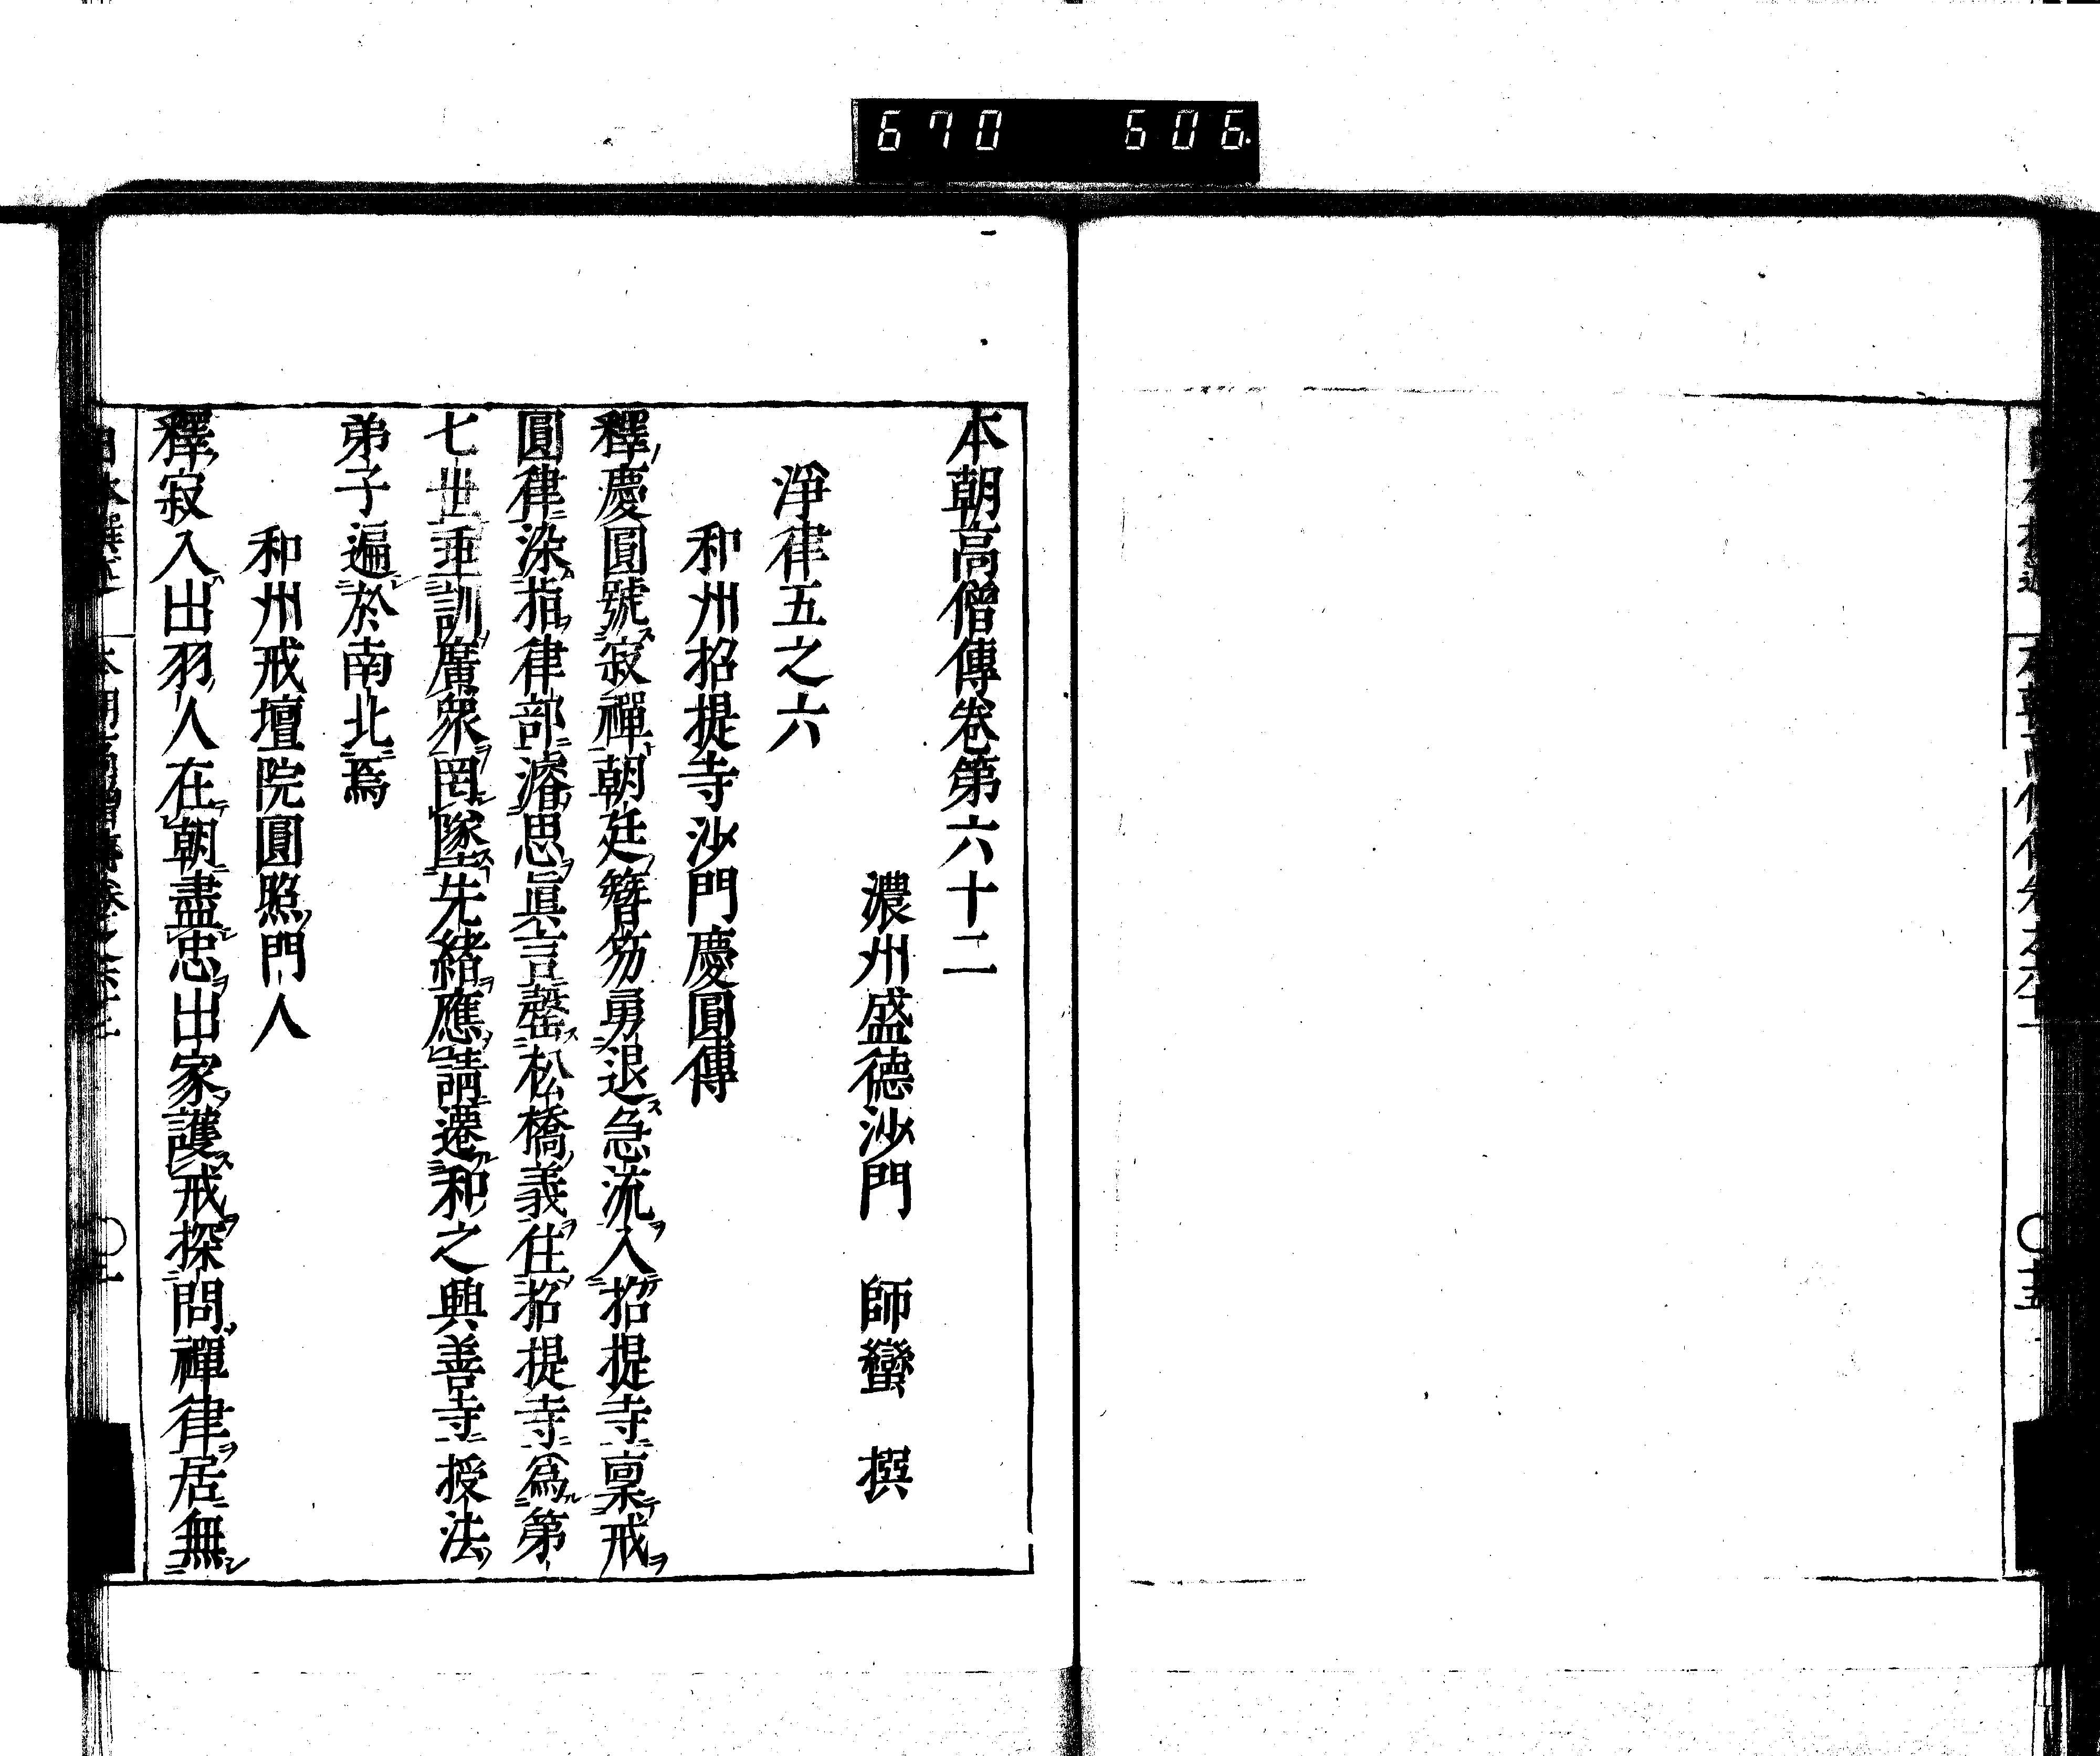 670 606.
本朝高僧傳卷第六十二
濃州盛德沙門 師蠻 撰
淨律五之六
和州招提寺沙門慶圓傳
釋慶圓號寂禪朝廷簪笏勇退急流入招提寺稟戒
圓律染指律部濬思眞言罄松橋義住招提寺爲第
七世垂訓廣衆罔墜先緒應請遷和之興善寺授法
弟子遍於南北焉
和州戒壇院圓照門人
釋寂入出羽人在朝盡忠出家護戒探問禪律居無